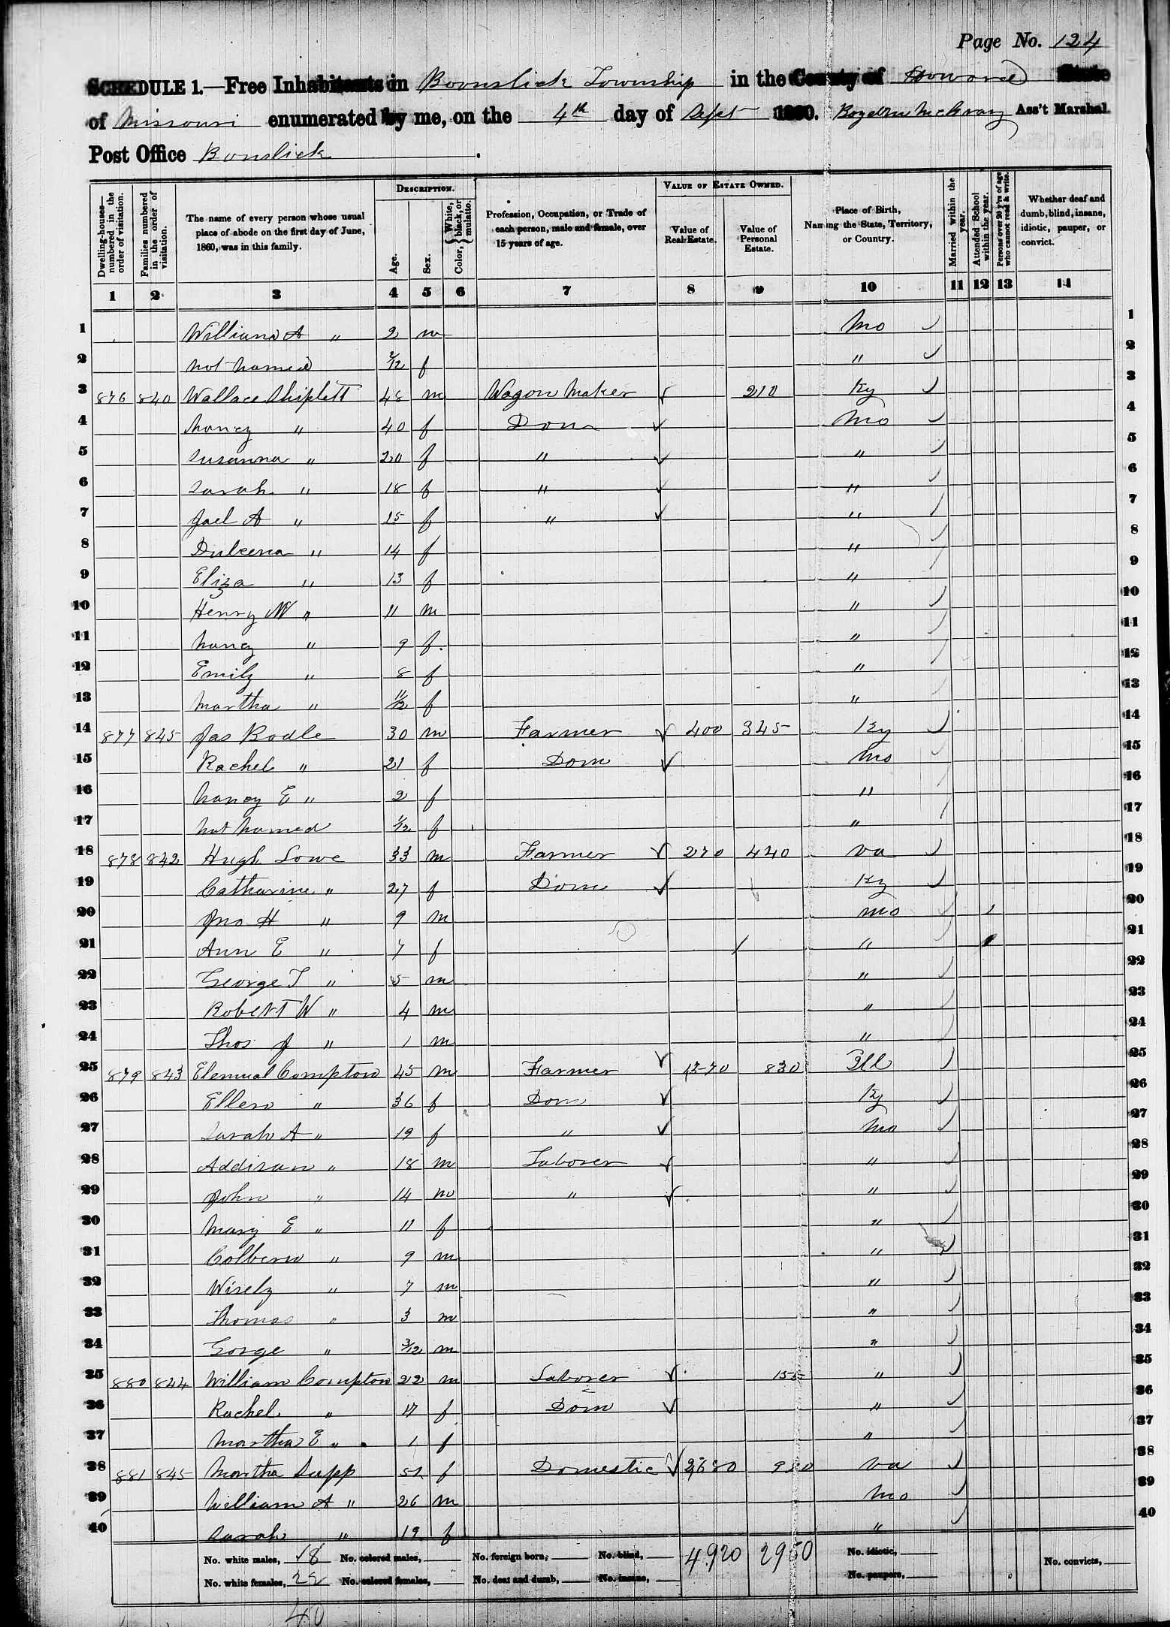 Page No. 124
SCHEDULE 1.—Free Inhabitants in Boonslick Township in the County of Howard State
of Missouri enumerated by me, on the 4th day of Sept 1860. Ass't Marshal.
Post Office Bonslick.
Dwelling-houses—numbered in the order of visitation.
Families numbered in the order of visitation.
The name of every person whose usual place of abode on the first day of June, 1860, was in this family.
DESCRIPTION.
Age.
Sex.
Color, White, black, or mulatto.
Profession, Occupation, or Trade of each person, male and female, over 15 years of age.
VALUE OF ESTATE OWNED.
Value of Real Estate.
Value of Personal Estate.
Place of Birth, Naming the State, Territory, or Country.
Married within the year.
Attended School within the year.
Persons over 20 y'rs of age who cannot read & write.
Whether deaf and dumb, blind, insane, idiotic, pauper, or convict.
1 2 3 4 5 6 7 8 9 10 11 12 13 14
1 William A " 2 m Mo 1
2 not named 2/12 f " 2
3 876 840 Wallace Shiplett 48 m Wagon Maker 210 Ky 3
4 Nancy " 40 f Dom Mo 4
5 Susanna " 20 f " " 5
6 Sarah " 18 f " " 6
7 Jael A " 15 f " " 7
8 Dulcena " 14 f " 8
9 Eliza " 13 f " 9
10 Henry W " 11 m " 10
11 Nancy " 9 f " 11
12 Emily " 8 f " 12
13 Martha " 11/12 f " 13
14 877 845 Jas Rodle 30 m Farmer 400 345 Ky 14
15 Rachel " 21 f Dom Mo 15
16 Nancy E " 2 f " 16
17 not named 1/12 f " 17
18 878 842 Hugh Lowe 33 m Farmer 270 440 Va 18
19 Catharine " 27 f Dom Ky 19
20 Jno H " 9 m Mo 1 20
21 Ann E " 7 f " 1 21
22 George T " 5 m " 22
23 Robert W " 4 m " 23
24 Thos J " 1 m " 24
25 879 843 Elemual Compton 45 m Farmer 1570 830 Ill 25
26 Ellen " 36 f Dom Ky 26
27 Sarah A " 19 f " Mo 27
28 Addison " 18 m Laborer " 28
29 John " 14 m " " 29
30 Mary E " 11 f " 30
31 Colbern " 9 m " 31
32 Wisely " 7 m " 32
33 Thomas " 3 m " 33
34 Gorge " 3/12 m " 34
35 880 844 William Compton 22 m Laborer 155 " 35
36 Rachel " 17 f Dom " 36
37 Martha E " 1 f " 37
38 881 845 Martha Supp 52 f Domestic 2680 Va 38
39 William A " 26 m Mo 39
40 Sarah " 19 f " 40
No. white males, 18 No. colored males, No. foreign born, No. blind, 4920 2950 No. idiotic, No. convicts,
No. white females, 22 No. colored females, No. deaf and dumb, No. insane, No. paupers,
40